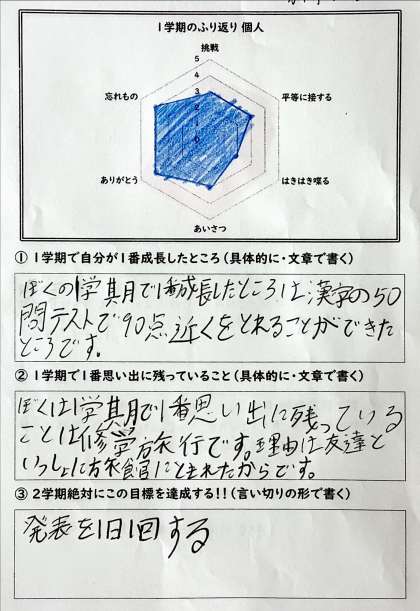 1学期のふり返り 個人
挑戦
5
4
3
忘れもの
平等に接する
ありがとう
はきはき喋る
あいさつ
① 1学期で自分が1番成長したところ(具体的に・文章で書く)
ぼくの1学期で1番成長したところは漢字の50
問テストで90点近くをとれることができた
ところです。
② 1学期で1番思い出に残っていること(具体的に・文章で書く)
ぼくは1学期で1番思い出に残っている
ことは修学旅行です。理由は友達と
いっしょに旅館にとまれたからです。
③ 2学期絶対にこの目標を達成する!!(言い切りの形で書く)
発表を1日1回する